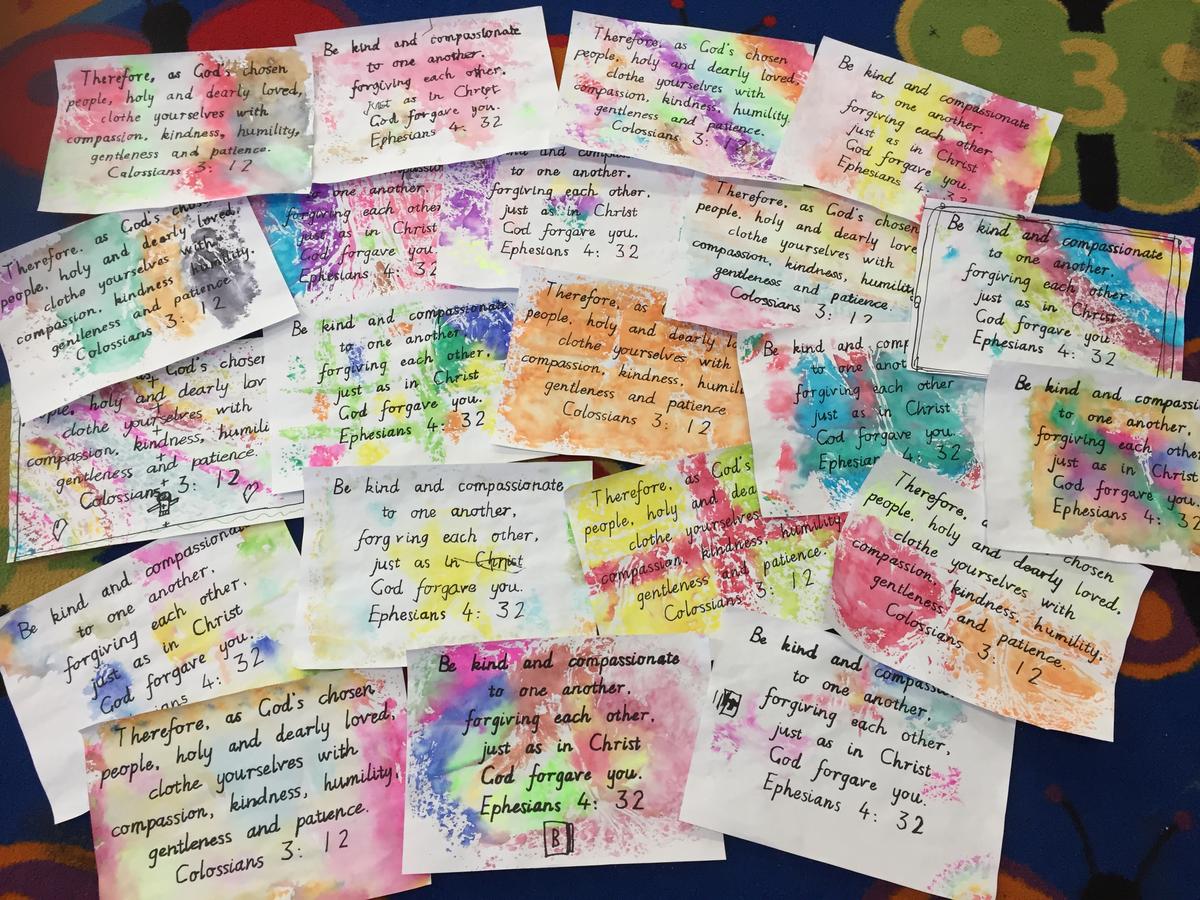 Therefore, as God's chosen
people, holy and dearly loved,
clothe yourselves with
compassion, kindness, humility,
gentleness and patience.
Calossians 3: 12
Be kind and compassionate
to one another.
forgiving each other.
just as in Christ
God forgave you.
Ephesians 4: 32
Therefore, as God's chosen
people, holy and dearly loved,
clothe yourselves with
compassion, kindness, humility,
gentleness and patience.
Colossians 3: 12
Be kind and compassionate
to one another.
forgiving each other
just as in Christ
God forgave you.
Ephesians 4:
3
Therefore. as God's
people, holy and dearly loved.
clothe yourselves with
compassion, kindness humility.
gentleness and patience
Colossians 3: 12
to one another.
forgiving each other
just as in Christ
God forgave you
Ephesians 4: 32
and com
to one another.
forgiving each other.
just as in Christ
God forgave you.
Ephesians 4: 32
Therefore, as God's chosen
people, holy and dearly loved
clothe yourselves with
compassion, kindness, humility
gentleness and patience.
Colossians 3: 12
Be kind and compassionate
to one another.
forgiving each other.
just as in Christ
God forgave you.
Ephesians 4: 32
as God's chosen
holy and dearly lov
clothe yourselves with
compassion, kindness, humili
gentleness and patience.
Colossians 3: 12
Be kind and compassionate
to one another.
forgiving each other.
just as in Christ
God forgave you.
Ephesians 4: 32
Therefore, as
people, holy and dearly
clothe yourselves with
compassion, kindness, humili
gentleness and patience
Colossians 3: 12
Be kind and comp
to one another
forgiving each other
just as in Christ
God forgave you
Ephesian
Be kind and compassi
to one another.
forgiving each other
just as in Christ
God forgave you
Ephesians 4: 32
Be kind and compassionate
to one another,
forgiving each other,
just as in Christ
God forgave you.
Ephesians 4: 32
Therefore, as God's
people, holy and dea
clothe yourselves
compassion, kindness, humility
gentleness and patience.
Colossians 3: 12
Therefore,
people, holy and dearly loved,
chosen
clothe yourselves with
compassion, kindness, humility.
gentleness and patience.
Colossians 3: 12
Be kind and compassiona
to one another.
forgiving each other.
just as in Christ
God forgave you.
ians 4: 32
Therefore, as God's chosen
people, holy and dearly loved,
clothe yourselves with
compassion, kindness, humility,
gentleness and patience.
Colossians 3: 12
Be kind and compassionate
to one another.
forgiving each other.
just as in Christ
God forgave you.
Ephesians 4: 32
B
Be kind and compassi
to one another,
forgiving each other,
just as in Christ
God forgave you.
Ephesians 4: 32